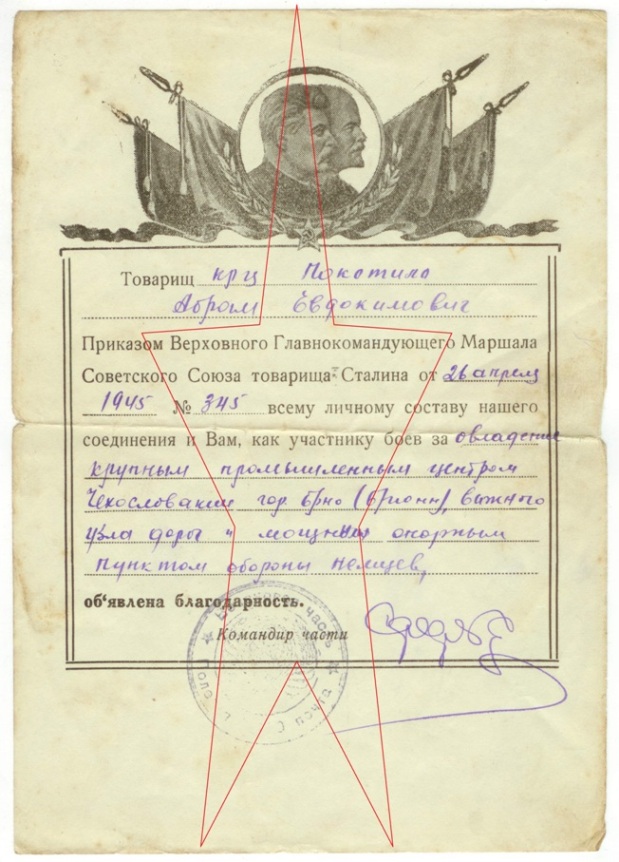 Товарищ крц Покотило
Абрам Евдокимович
Приказом Верховного Главнокомандующего Маршала
Советского Союза товарища Сталина от 26 апреля
1945 № 345 всему личному составу нашего
соединения и Вам, как участнику боев за овладение
крупным промышленным центром
Чехословакии гор. Брно (Брюнн), важного
узла дорог и мощным опорным
пунктом обороны немцев,
об‘явлена благодарность.
Командир части
часть